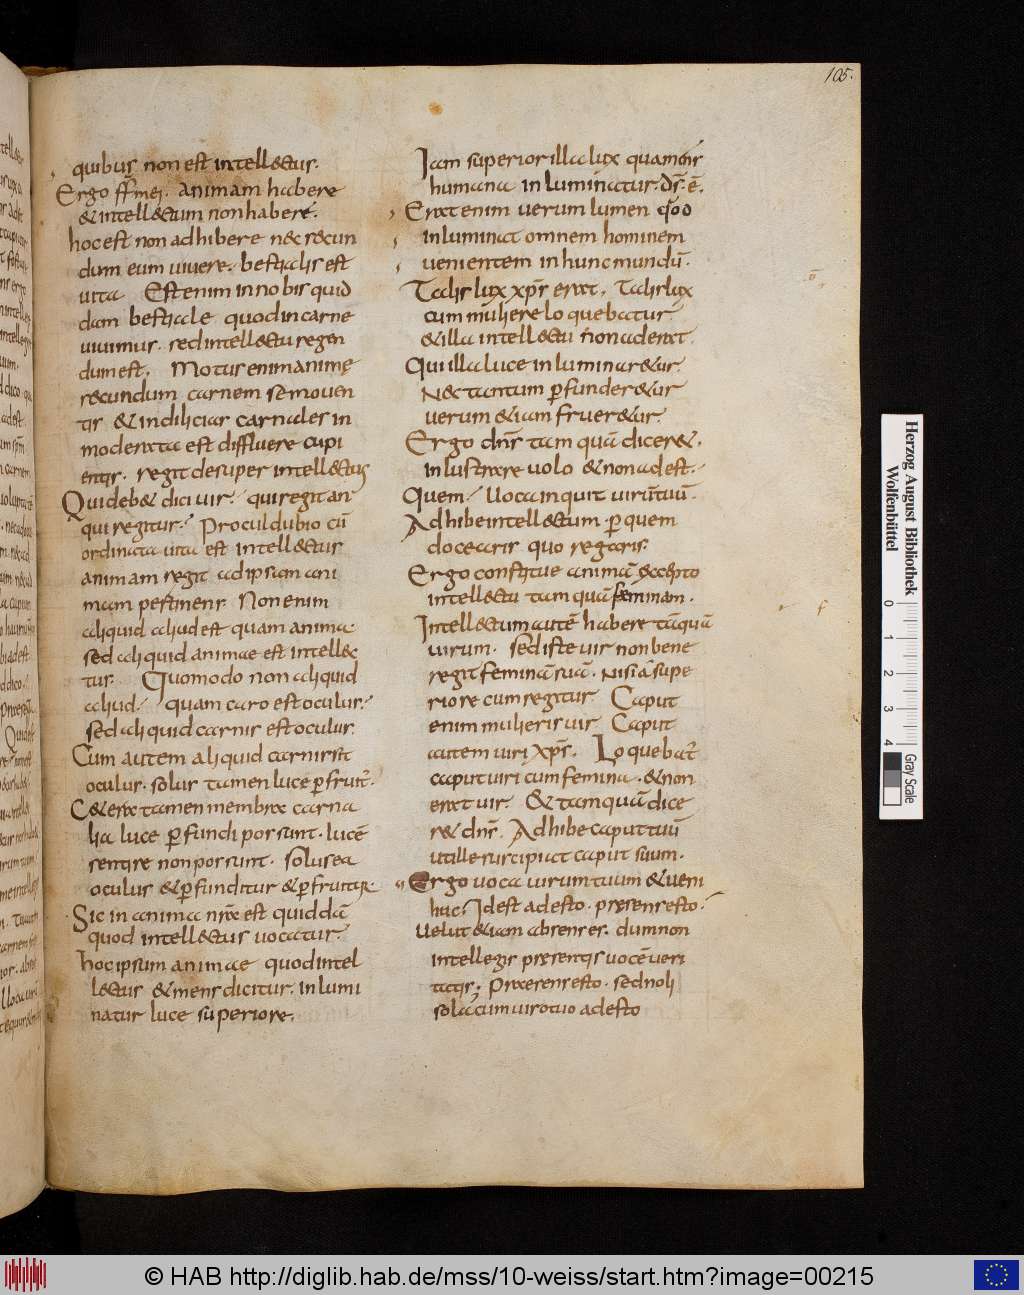 105.
quibus non est intellectus.
Ergo ff̄ mei. animam habere
& intellectum non habere.
hoc est non adhibere nec secun
dum eum uiuere. bestialis est
uita Est enim in nobis quid
dam bestiale quod in carne
uiuimus. sed intellectu regen
dum est. Motus enim animę
secundum carnem se mouen
tis & in dilicias carnales in
moderata est diffluere cupi
entis. regit desuper intellectus
Qui deb& dici uir. qui regit an
qui regitur. Procul dubio cū
ordinata uita est intellectus
animam regit ad ipsam ani
mam pertinens. Non enim
aliquid aliud est quam anima.
sed aliquid animae est intellec
tus. Quomodo non aliquid
aliud. quam caro est oculus.
sed aliquid carnis est oculus.
Cum autem aliquid carnis sit
oculus. solus tamen luce ꝑfruit̄.
C&era tamen membra carna
lia luce ꝑfundi possunt. lucē
sentire non possunt. solus ea
oculus & ꝑfunditur & ꝑfruitur
Sic in anima nr̄a est quiddā
quod intellectus uocatur.
hoc ipsum animae quod intel
lectus & mens dicitur. inlumi
natur luce superiore.
Iam superior illa lux qua mens
humana inluminatur. ds̄. ē.
Erat enim uerum lumen quod
inluminat omnem hominem
uenientem in hunc mundū.
Talis lux xp̄s erat. Talis lux
cum muliere loquebatur
& illa intellectu non aderat.
Qui illa luce inluminar&ur.
Nec tantum ꝑfunder&ur
uerum &iam fruer&ur.
Ergo dn̄s tamquā dicer&.
inlustrare uolo & non adest.
Quem. Uoca inquit uirū tuū.
Adhibe intellectum. ꝑ quem
docearis quo regaris.
Ergo constitue animā excepto
intellectu tamquā feminam.
Intellectum autē habere tāquā
uirum. sed iste uir non bene
regit feminā suā. nisi a supe
riore cum regitur Caput
enim mulieris uir Caput
autem uiri xp̄s. Loquebat̄
caput uiri cum femina. & non
erat uir. & tamquā dice
r& dn̄s. Adhibe caput tuū
ut ille suscipiat caput suum.
Ergo uoca uirum tuum & ueni
huc. Id est adesto. praesens esto.
Uelut &iam absens es. dum non
intellegis praesentis uocē ueri
tatis. Praesens esto. sed noli
sola cum uiro tuo adesto
Herzog August Bibliothek
Wolfenbüttel
0 1 2 3 4
Gray Scale
© HAB http://diglib.hab.de/mss/10-weiss/start.htm?image=00215